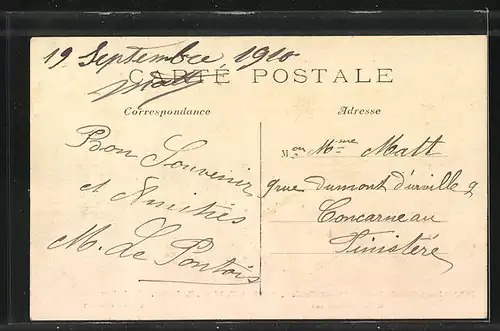 19 Septembre 1910
CARTE POSTALE
Matt
Correspondance
Adresse
Bon Souvenir
et Amitiés
M. Le Pontois
M on Mme Matt
9 rue Dumont d'urville 9
Concarneau
Finistère